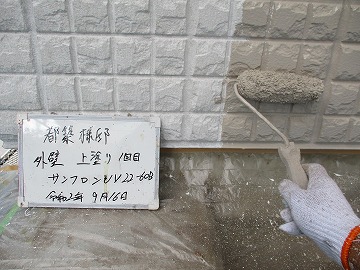 都築様邸
外壁 上塗り1回目
サンフロンUV 22-60B
令和2年 9月16日